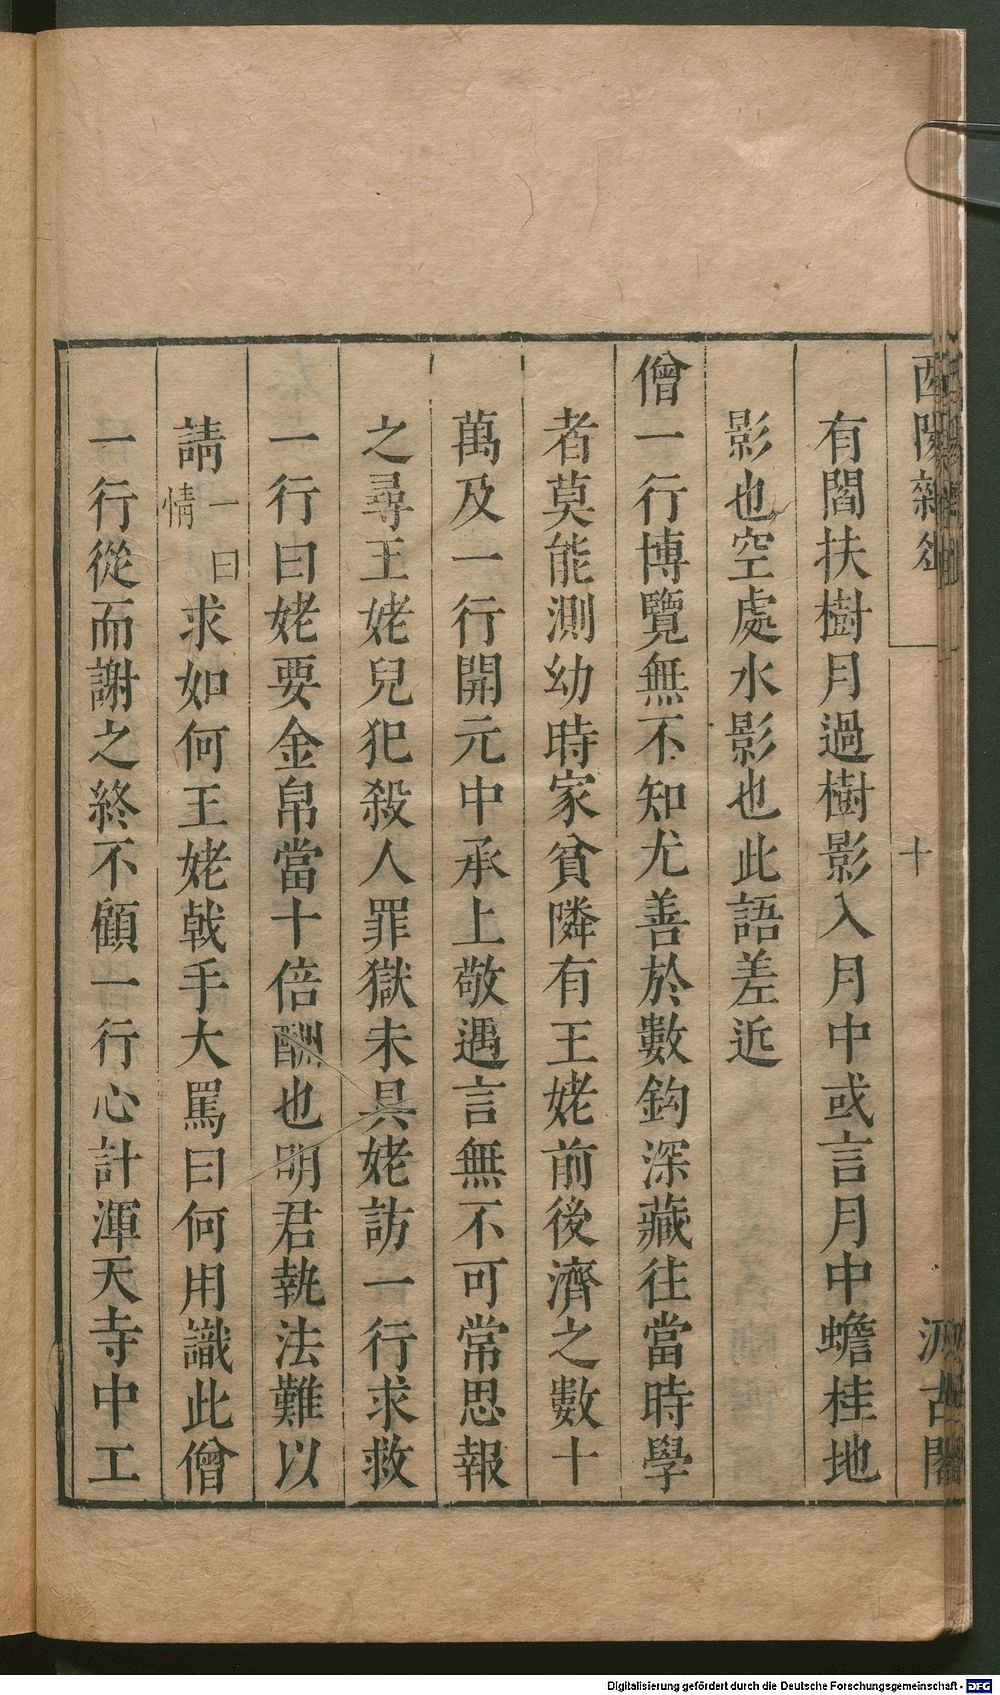 酉陽雜俎 一 十 汲古閣
有閻扶樹月過樹影入月中或言月中蟾桂地
影也空處水影也此語差近
僧一行博覽無不知尤善於數鈎深藏往當時學
者莫能測幼時家貧隣有王姥前後濟之數十
萬及一行開元中承上敬遇言無不可常思報
之尋王姥兒犯殺人罪獄未具姥訪一行求救
一行曰姥要金帛當十倍酬也明君執法難以
請一曰情求如何王姥戟手大罵曰何用識此僧
一行從而謝之終不顧一行心計渾天寺中工
Digitalisierung gefördert durch die Deutsche Forschungsgemeinschaft - DFG